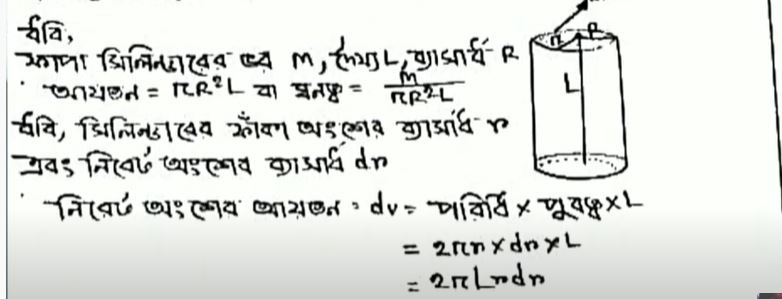 ধরি,
ফাপা সিলিন্ডারের ভর M, দৈর্ঘ্য L, ব্যাসার্ধ R
∴ আয়তন = πR²L বা ঘনত্ব = M/πR²L
ধরি, সিলিন্ডারের ফাঁকা অংশের ব্যাসার্ধ r
এবং নিরেট অংশের ব্যাসার্ধ dr
∴ নিরেট অংশের আয়তন = dv = পরিধি × পুরুত্ব × L
= 2πr × dr × L
= 2πLrdr
r R
L